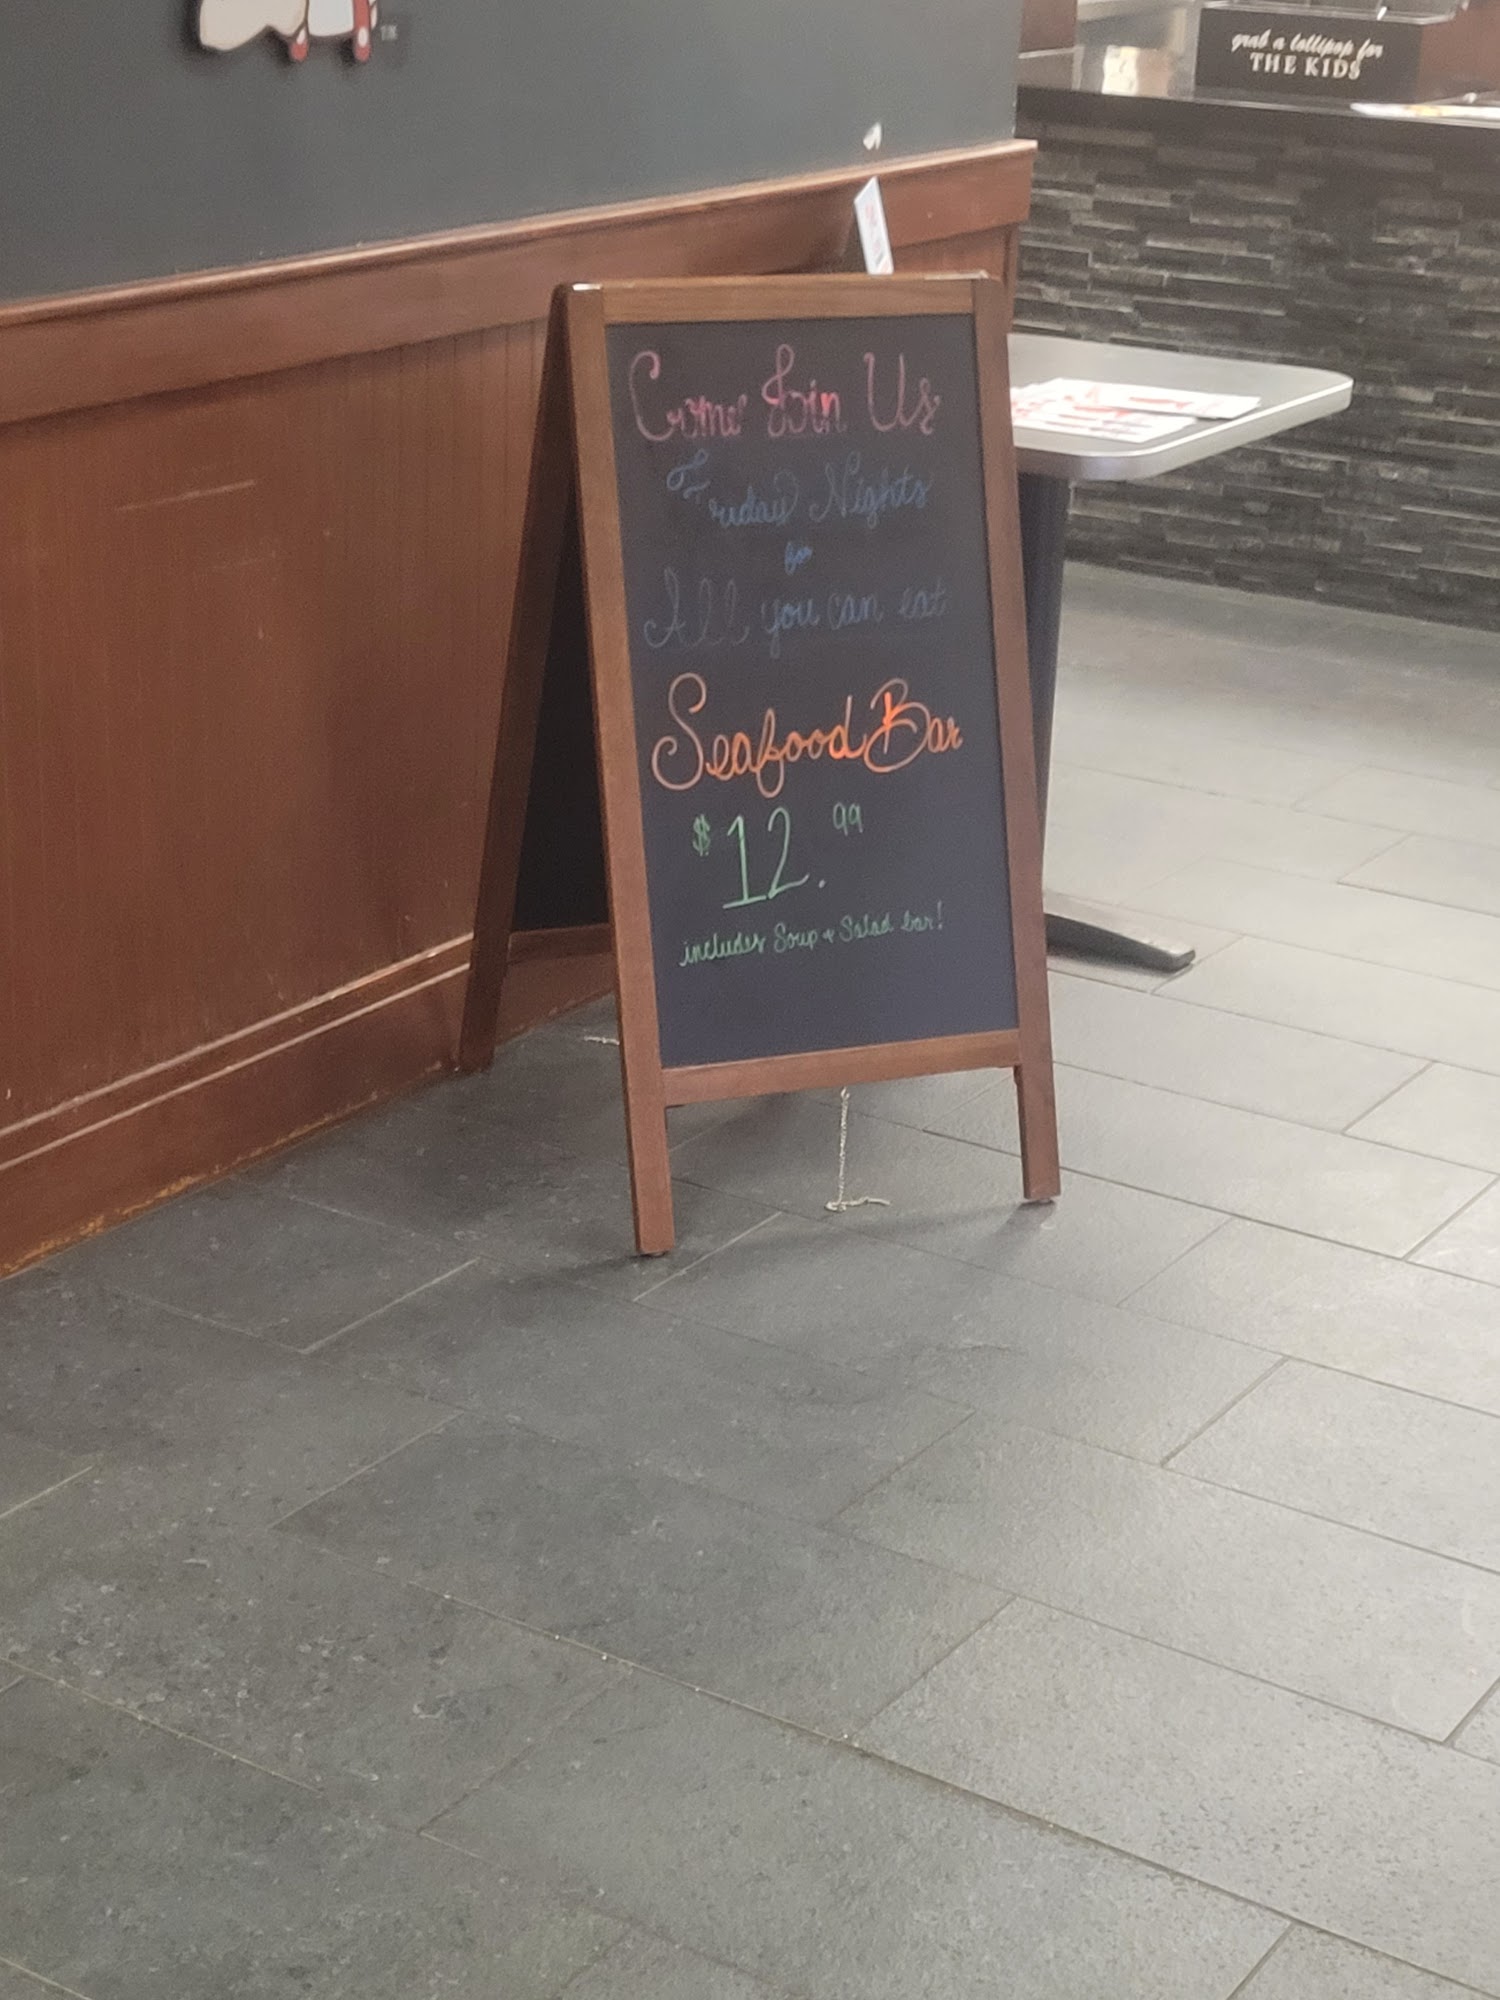 TM
grab a lollipop for
THE KIDS
Come Join Us
Friday Nights
for
All you can eat
Seafood Bar
$12.99
includes Soup & Salad bar!